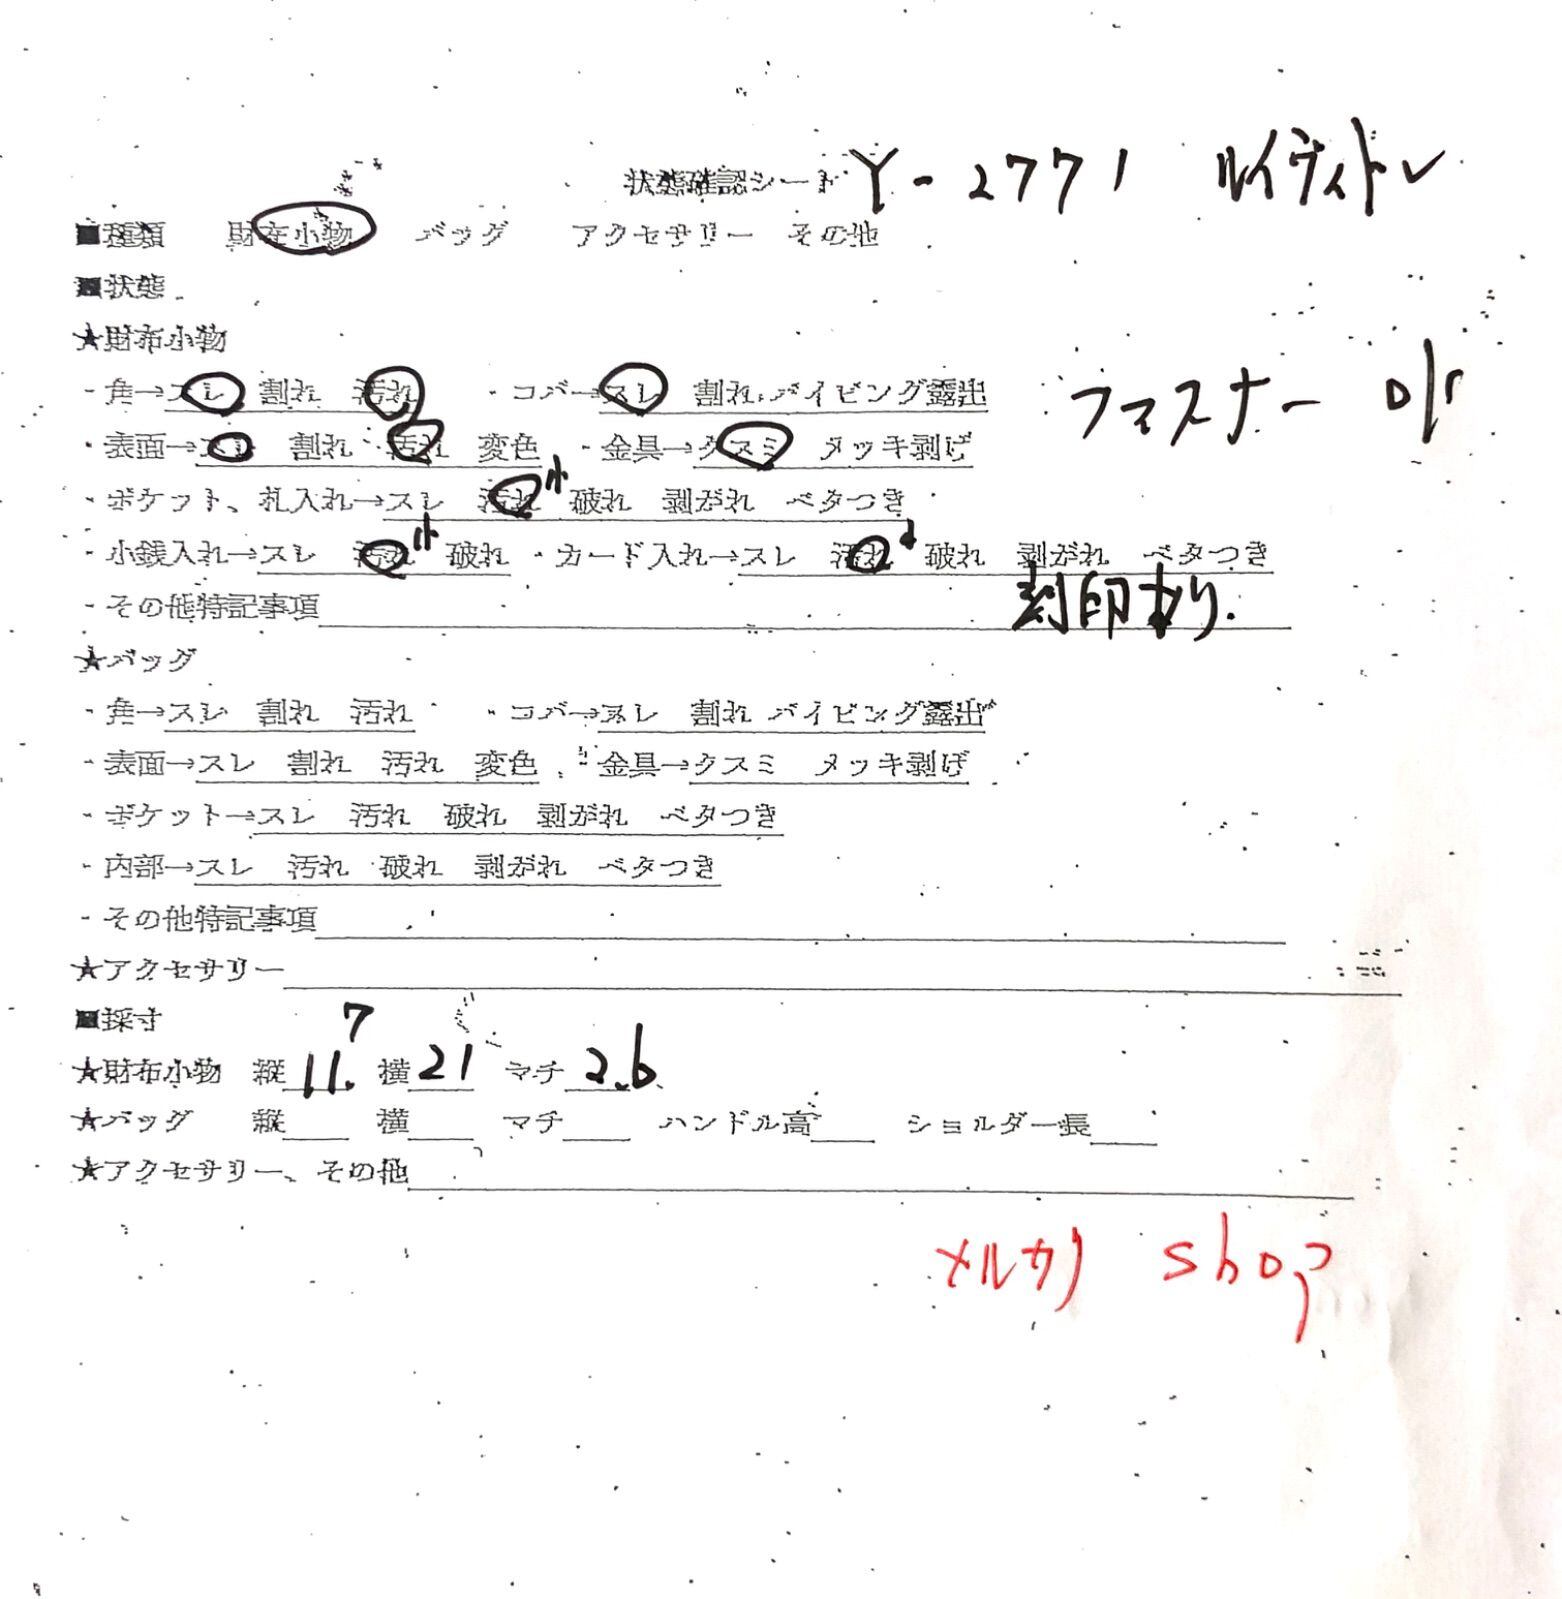 状態確認シート Y-2771 ルイヴィトン
■種類 財布小物 バッグ アクセサリー その他
■状態
★財布小物
・角→スレ 割れ 汚れ ・コバ→スレ 割れ パイピング露出
ファスナー
・表面→スレ 割れ 汚れ 変色 ・金具→クスミ メッキ剥げ
・ポケット、札入れ→スレ 汚れ 小 破れ 剥がれ ベタつき
・小銭入れ→スレ 汚れ 小 破れ ・カード入れ→スレ 汚れ 破れ 剥がれ ベタつき
・その他特記事項 刻印あり.
★バッグ
・角→スレ 割れ 汚れ ・コバ→スレ 割れ パイピング露出
・表面→スレ 割れ 汚れ 変色 ・金具→クスミ メッキ剥げ
・ポケット→スレ 汚れ 破れ 剥がれ ベタつき
・内部→スレ 汚れ 破れ 剥がれ ベタつき
・その他特記事項
★アクセサリー
■採寸
★財布小物 縦 11.7 横 21 マチ 2.6
★バッグ 縦 横 マチ ハンドル高 ショルダー長
★アクセサリー、その他
メルカリ shop